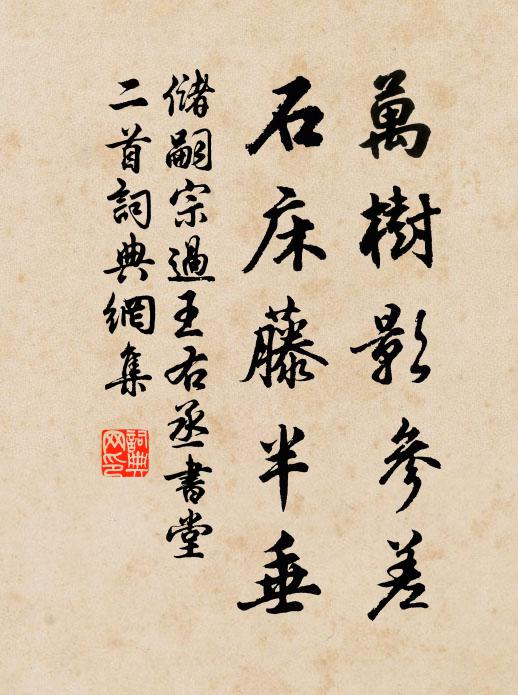 萬樹影參差
石床藤半垂
儲嗣宗過王右丞書堂
二首詞典網集
詞典網印